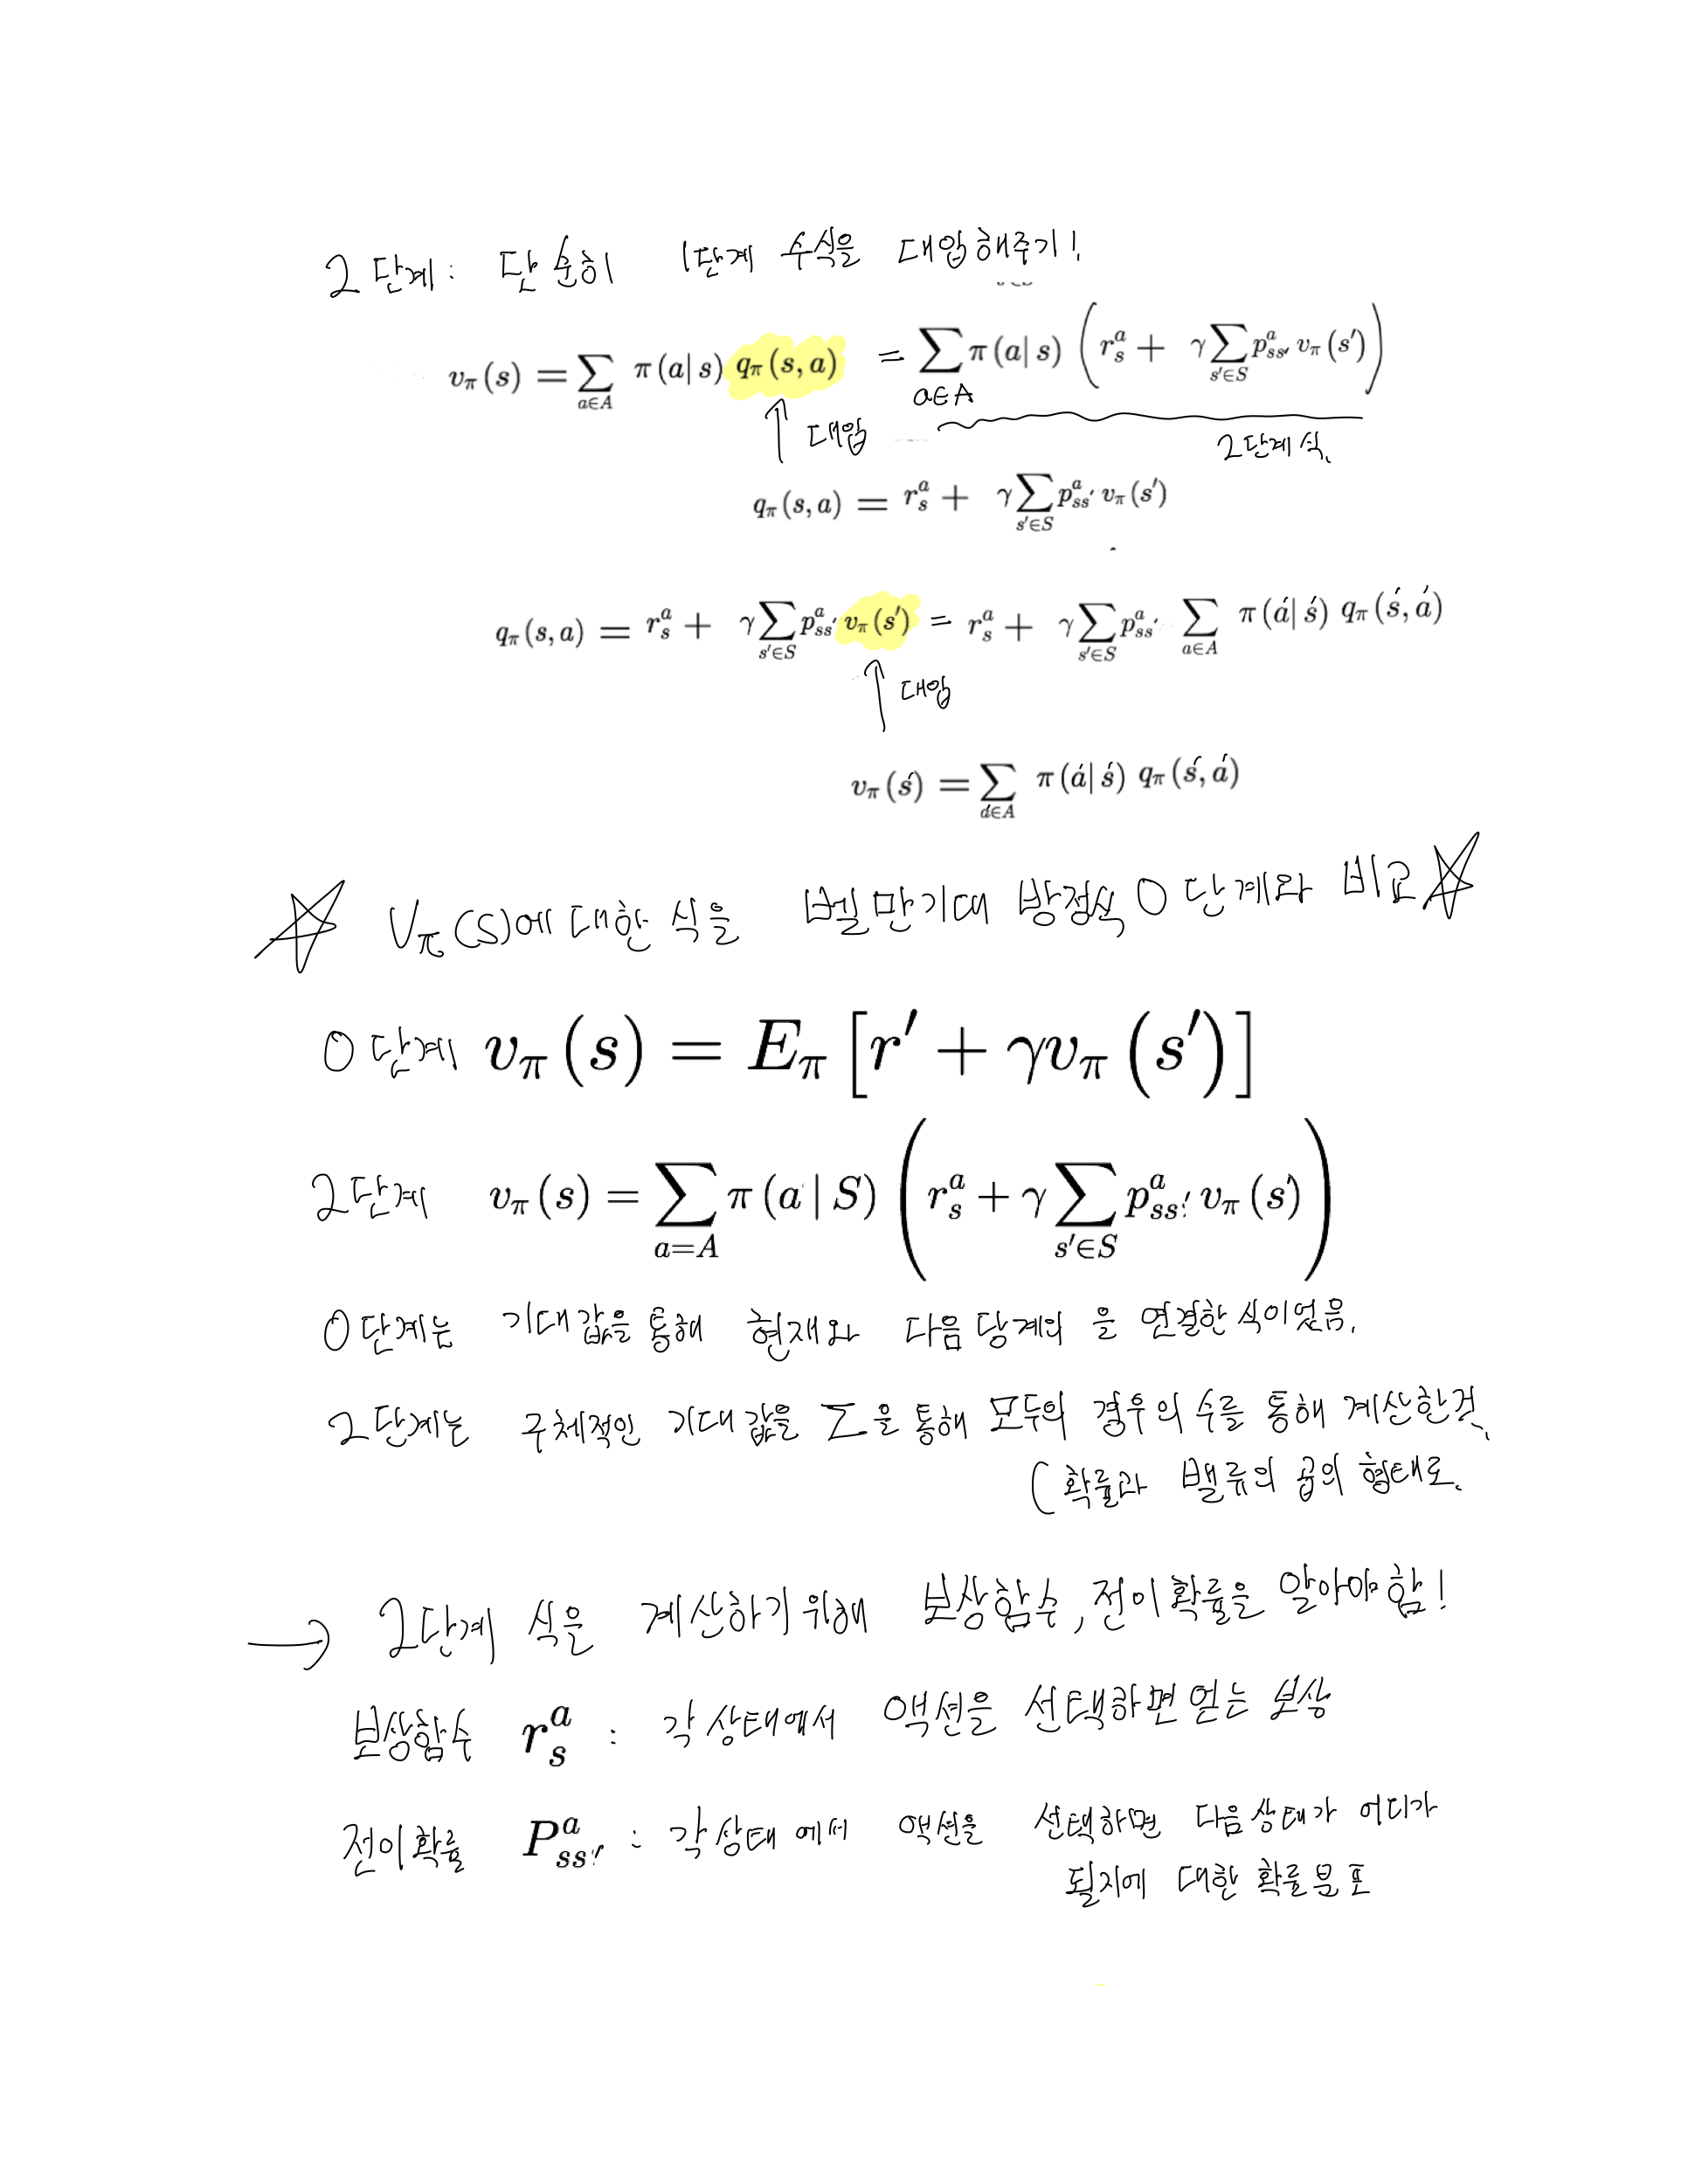 2단계: 단순히 1단계 수식을 대입해주기!
v_π(s) = ∑_{a∈A} π(a|s) q_π(s,a) = ∑_{a∈A} π(a|s) (r_s^a + γ∑_{s'∈S} p_{ss'}^a v_π(s'))
대입
2단계 식.
q_π(s,a) = r_s^a + γ∑_{s'∈S} p_{ss'}^a v_π(s')
q_π(s,a) = r_s^a + γ∑_{s'∈S} p_{ss'}^a v_π(s') = r_s^a + γ∑_{s'∈S} p_{ss'}^a ∑_{a∈A} π(a'|s') q_π(s',a')
대입
v_π(s') = ∑_{a'∈A} π(a'|s') q_π(s',a')
☆ V_π(s)에 대한 식을 벨만기대 방정식 0단계와 비교 ☆
0단계 v_π(s) = E_π[r' + γv_π(s')]
2단계 v_π(s) = ∑_{a=A} π(a|S) (r_s^a + γ∑_{s'∈S} p_{ss'}^a v_π(s'))
0단계는 기대값을 통해 현재와 다음 당계의 을 연결한 식이었음.
2단계는 구체적인 기대값을 ∑을 통해 모두의 경우의 수를 통해 계산한것.
(확률과 밸류의 곱의 형태로.
→ 2단계 식은 계산하기위해 보상함수, 전이확률을 알아야함!
보상함수 r_s^a : 각 상태에서 액션을 선택하면 얻는 보상
전이확률 P_{ss'}^a : 각 상태에서 액션을 선택하면 다음상태가 어디가
될지에 대한 확률분포